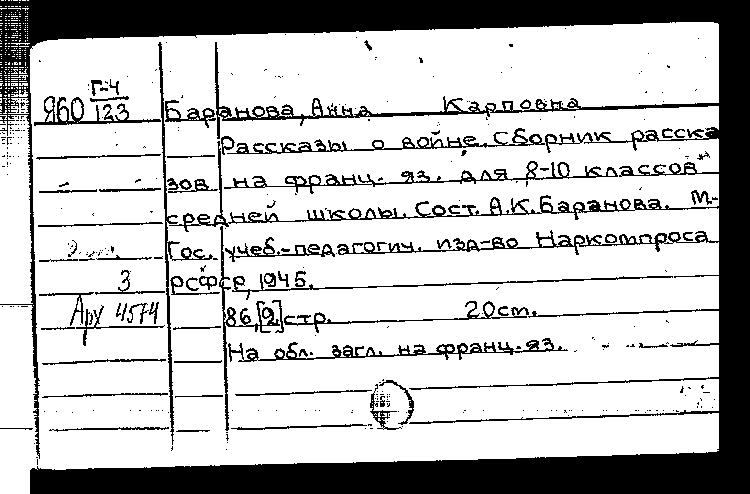 Г-4
Я60 123 Баранова, Анна Карповна
Рассказы о войне. Сборник расска
зов на франц. яз. для 8-10 классов
средней школы. Сост. А.К. Баранова. М.-
Гос. учеб.-педагогич. изд-во Наркомпроса
3 РСФСР, 1945.
Арх 4574 86,[2]стр. 20см.
На обл. загл. на франц. яз.